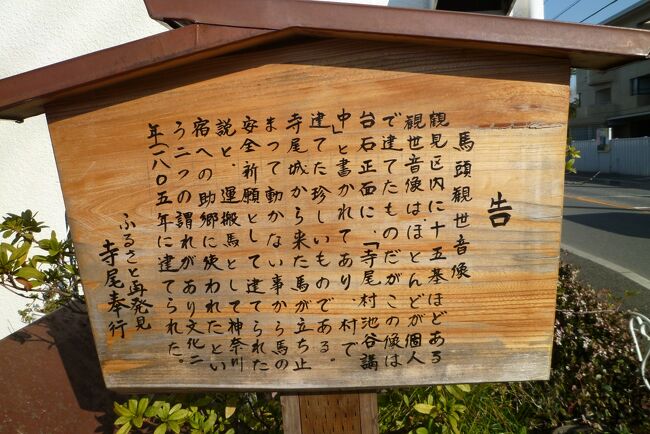 告
馬頭観世音像
観見区内に十五基ほどある
観世音像は、ほとんどが個人
で建てたものだがこの像は
台石正面に、「寺尾村池谷講
中」と書かれてあり、村で
建てた珍しいものである。
寺尾城から来た馬が立ち止
まって動かない事から馬の
安全祈願として建てられた
説と、運搬馬として神奈川
宿への助郷に使われたとい
う二つの謂れがあり文化二
年(一八〇五年に建てられた。
ふるさと再発見
寺尾奉行